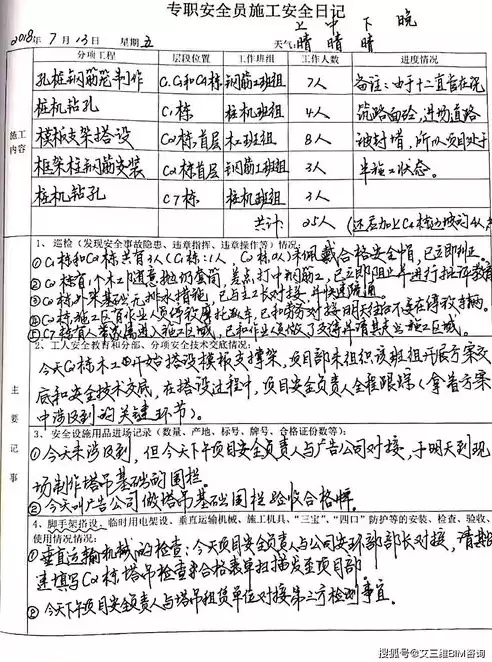 专职安全员施工安全日记
上 中 下 晚
2018年 7 月 13 日 星期 五 天气: 晴 晴 晴
分项工程 层段位置 工作班组 工作人数 进度情况
施工内容
孔桩钢筋笼制作 钢筋工班组 7人 备注:由于十二直在浇
桩机钻孔 C1栋 桩机班组 4人 筑路面砼,进场道路
模板支架搭设 C2栋首层 木工班组 8人 被封堵,所以项目处于
框架柱钢筋安装 C2栋首层 钢筋工班组 3人 半施工状态。
桩机钻孔 C7栋 桩机班组 3人
共计: 25人
主要记事
1、巡检(发现安全事故隐患、违章指挥、违章操作等)情况:
① C1栋和C2栋共有3人(C1栋:1人, C2栋:2人)未佩戴合格安全帽,已立即纠正。
② C2栋有1个木工随意抛扔套筒,差点打中钢筋工,已立即阻止并进行批评教育
③ C2栋外架基础无排水措施,已与主工长对接,并快速疏通。
2、工人安全教育和分部、分项安全技术交底情况:
今天C2栋木工开始搭设模板支撑架,项目部未组织该班组开展方案交
底和安全技术交底,在搭设过程中,项目安全负责人全程跟踪(拿着方案
中涉及到的关键环节)。
3、安全设施用品进场记录(数量、产地、标号、牌号、合格证份数等):
① 今天未涉及到,但今天下午项目安全负责人与广告公司对接,于明天到现
场制作塔吊基础的围栏。
② 今天叫广告公司做塔吊基础围栏验收合格牌。
4、脚手架搭设、临时用电架设、垂直运输机械、施工机具、“三宝”、“四口”防护等的安装、检查、验收、
使用情况情况:
① 垂直运输机械的检查:今天项目安全负责人与公司安环部部长对接,请其
速填写C2栋塔吊检查合格表单扫描发至项目部。
② 今天下午项目安全负责人与塔吊租赁单位对接第三方检测事宜。
搜狐号@艾三维BIM咨询